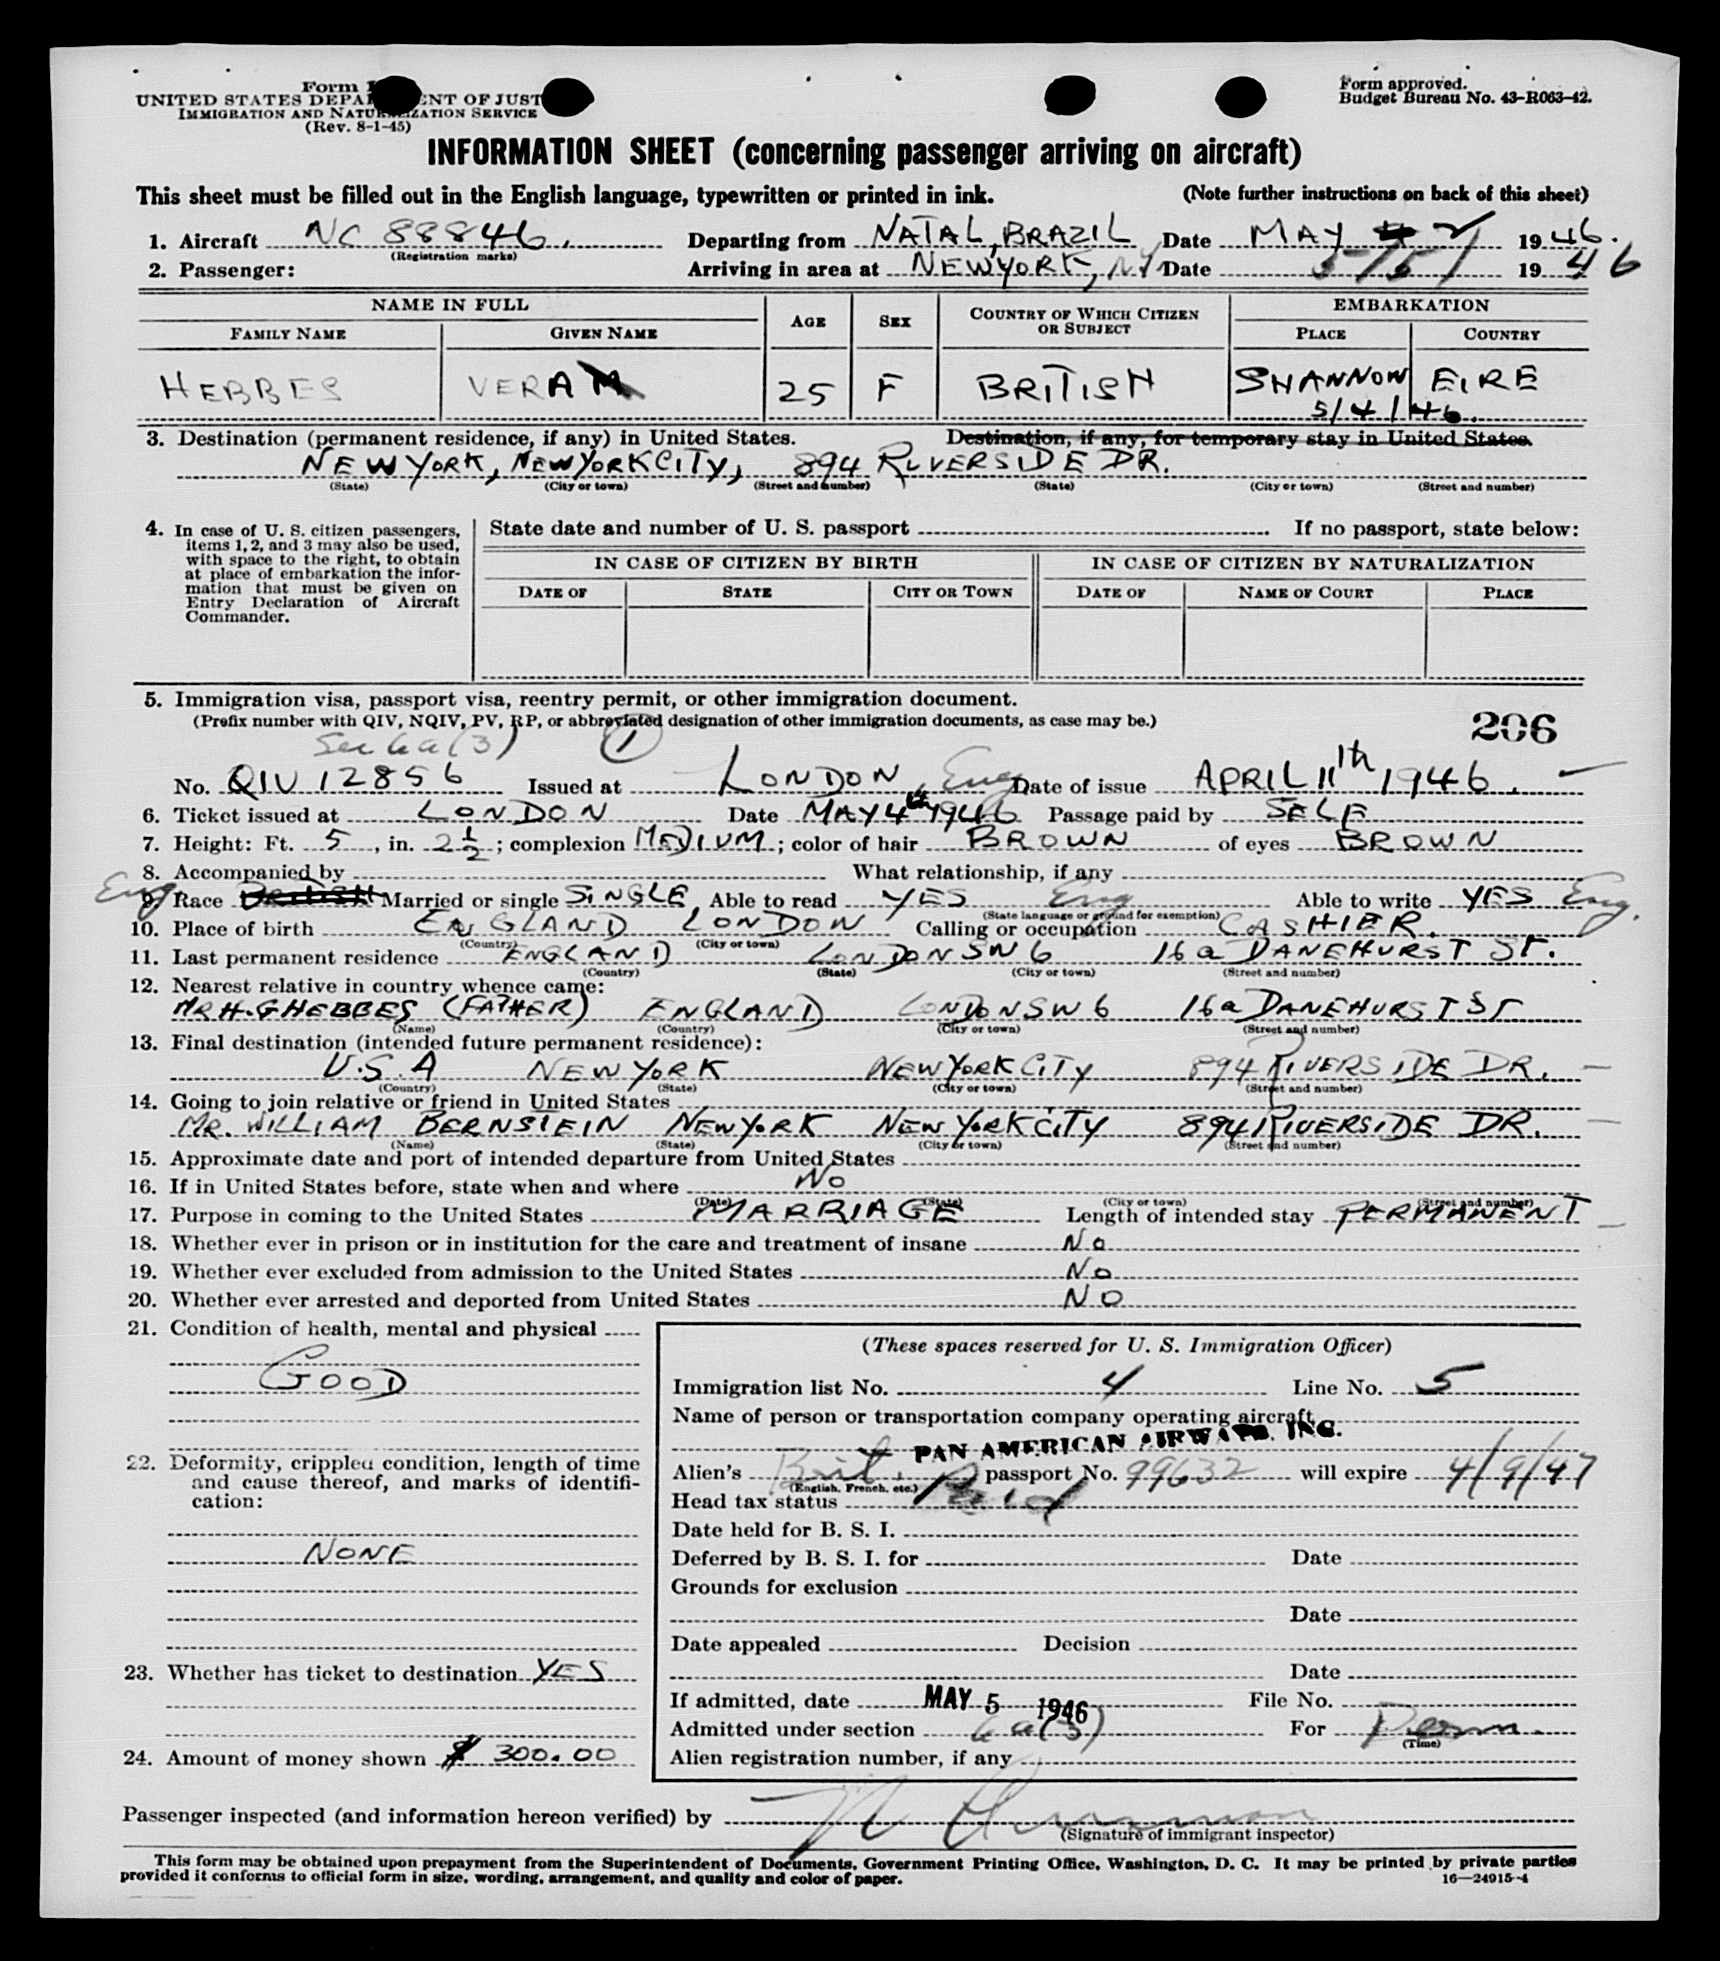 Form I
UNITED STATES DEPA ENT OF JUST
IMMIGRATION AND NATURALIZATION SERVICE
(Rev. 8-1-45)
Form approved.
Budget Bureau No. 43-R063-42.
INFORMATION SHEET (concerning passenger arriving on aircraft)
This sheet must be filled out in the English language, typewritten or printed in ink. (Note further instructions on back of this sheet)
1. Aircraft NC 88846. Departing from NATAL, BRAZIL Date MAY 2 1946.
(Registration marks)
2. Passenger: Arriving in area at NEW YORK, NY Date 5/5/ 1946
NAME IN FULL AGE SEX COUNTRY OF WHICH CITIZEN OR SUBJECT EMBARKATION
FAMILY NAME GIVEN NAME PLACE COUNTRY
HEBBES VERA M 25 F BRITISH SHANNON EIRE
5/4/46.
3. Destination (permanent residence, if any) in United States. Destination, if any, for temporary stay in United States.
NEW YORK, NEW YORK CITY, 894 RIVERSIDE DR.
(State) (City or town) (Street and number) (State) (City or town) (Street and number)
4. In case of U. S. citizen passengers, items 1, 2, and 3 may also be used, with space to the right, to obtain at place of embarkation the information that must be given on Entry Declaration of Aircraft Commander.
State date and number of U. S. passport If no passport, state below:
IN CASE OF CITIZEN BY BIRTH IN CASE OF CITIZEN BY NATURALIZATION
DATE OF STATE CITY OR TOWN DATE OF NAME OF COURT PLACE
5. Immigration visa, passport visa, reentry permit, or other immigration document.
(Prefix number with QIV, NQIV, PV, RP, or abbreviated designation of other immigration documents, as case may be.)
206
Sec 6a(3) 1
No. QIV 12856 Issued at LONDON, Eng Date of issue APRIL 11th 1946.
6. Ticket issued at LONDON Date MAY 4th 1946 Passage paid by SELF
7. Height: Ft. 5, in. 2½; complexion MEDIUM; color of hair BROWN of eyes BROWN
8. Accompanied by What relationship, if any
Eng
9. Race BRITISH Married or single SINGLE Able to read YES Eng Able to write YES Eng.
(State language or ground for exemption)
10. Place of birth ENGLAND LONDON Calling or occupation CASHIER.
(Country) (City or town)
11. Last permanent residence ENGLAND LONDON SW6 16a DANEHURST ST.
(Country) (State) (City or town) (Street and number)
12. Nearest relative in country whence came:
MR H.G HEBBES (FATHER) ENGLAND LONDON SW6 16a DANEHURST ST
(Name) (Country) (City or town) (Street and number)
13. Final destination (intended future permanent residence):
U.S.A NEW YORK NEW YORK CITY 894 RIVERSIDE DR.
(Country) (State) (City or town) (Street and number)
14. Going to join relative or friend in United States
MR. WILLIAM BERNSTEIN NEW YORK NEW YORK CITY 894 RIVERSIDE DR.
(Name) (State) (City or town) (Street and number)
15. Approximate date and port of intended departure from United States
16. If in United States before, state when and where NO
(Date) (State) (City or town) (Street and number)
17. Purpose in coming to the United States MARRIAGE Length of intended stay PERMANENT
18. Whether ever in prison or in institution for the care and treatment of insane NO
19. Whether ever excluded from admission to the United States NO
20. Whether ever arrested and deported from United States NO
21. Condition of health, mental and physical
GOOD
22. Deformity, crippled condition, length of time and cause thereof, and marks of identification:
NONE
23. Whether has ticket to destination YES
24. Amount of money shown $ 300.00
(These spaces reserved for U. S. Immigration Officer)
Immigration list No. 4 Line No. 5
Name of person or transportation company operating aircraft
PAN AMERICAN AIRWAYS, INC.
Alien's Brit. passport No. 99632 will expire 4/9/47
(English, French, etc.)
Head tax status Paid
Date held for B. S. I.
Deferred by B. S. I. for Date
Grounds for exclusion
Date
Date appealed Decision
Date
If admitted, date MAY 5 1946 File No.
Admitted under section 6a(3) For Perm.
(Time)
Alien registration number, if any
Passenger inspected (and information hereon verified) by
(Signature of immigrant inspector)
This form may be obtained upon prepayment from the Superintendent of Documents, Government Printing Office, Washington, D. C. It may be printed by private parties
provided it conforms to official form in size, wording, arrangement, and quality and color of paper. 16—24915-4